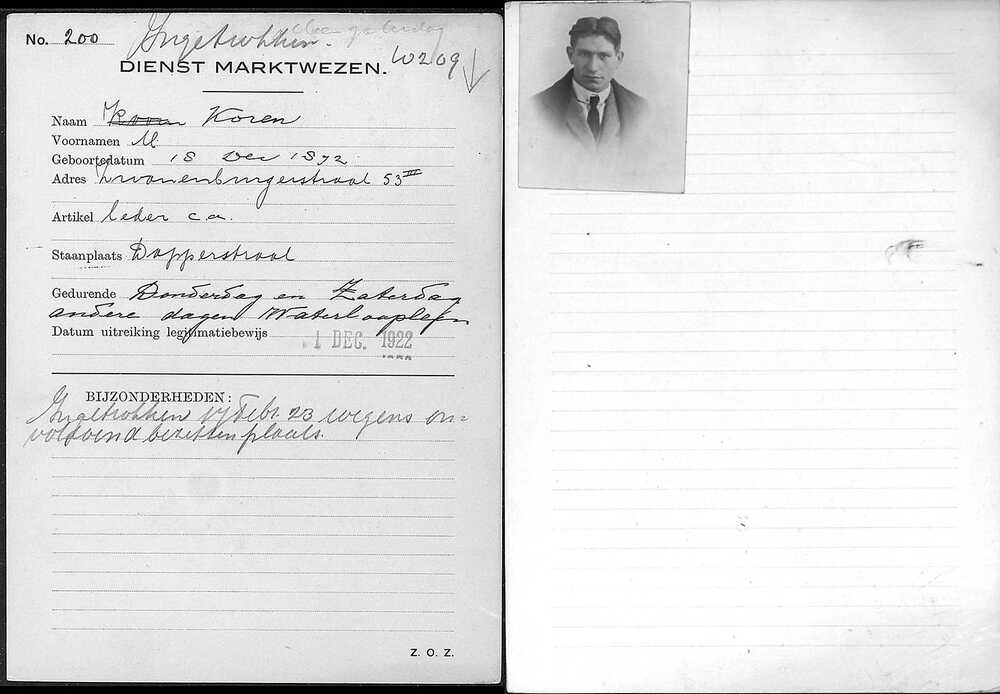 No. 200 Ingetrokken.
DIENST MARKTWEZEN. W209
Naam Koren
Voornamen M.
Geboortedatum 18 Dec 1872
Adres Zwanenburgerstraat 53 III
Artikel leder c.a.
Staanplaats Dapperstraat
Gedurende Donderdag en Zaterdag
andere dagen Waterlooplein
Datum uitreiking legitimatiebewijs 1 DEC. 1922
BIJZONDERHEDEN:
Ingetrokken 17 Febr. 23 wegens on=
voldoend bezetten plaats.
Z. O. Z.